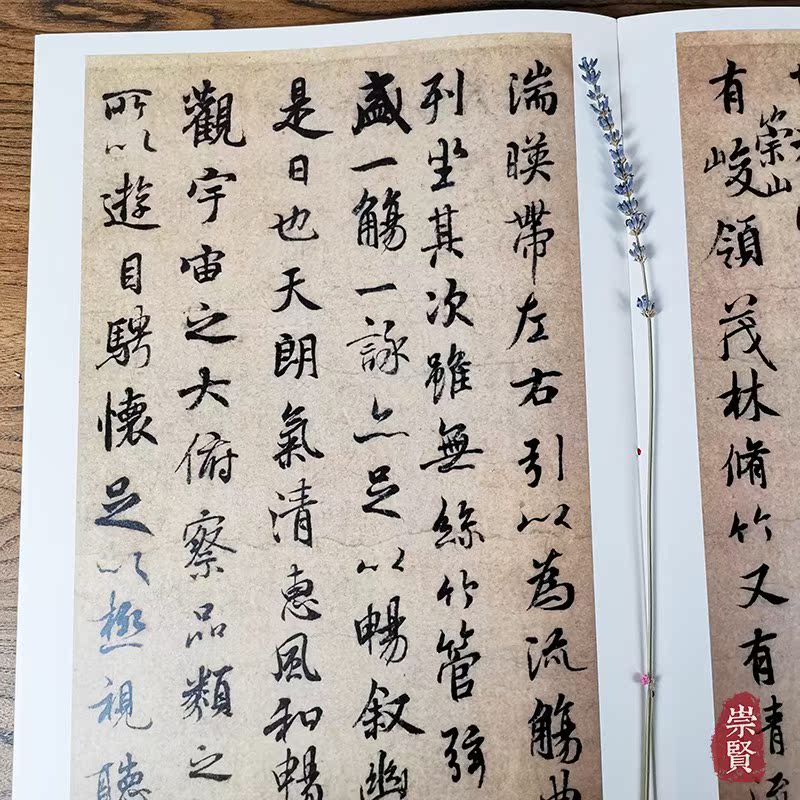 崇山
有峻領茂林脩竹又有清流
湍暎帶左右引以為流觴曲
列坐其次雖無絲竹管弦
盛一觴一詠亦足以暢叙幽
是日也天朗氣清惠風和暢
觀宇宙之大俯察品類之
所以遊目騁懷足以極視聽
崇賢